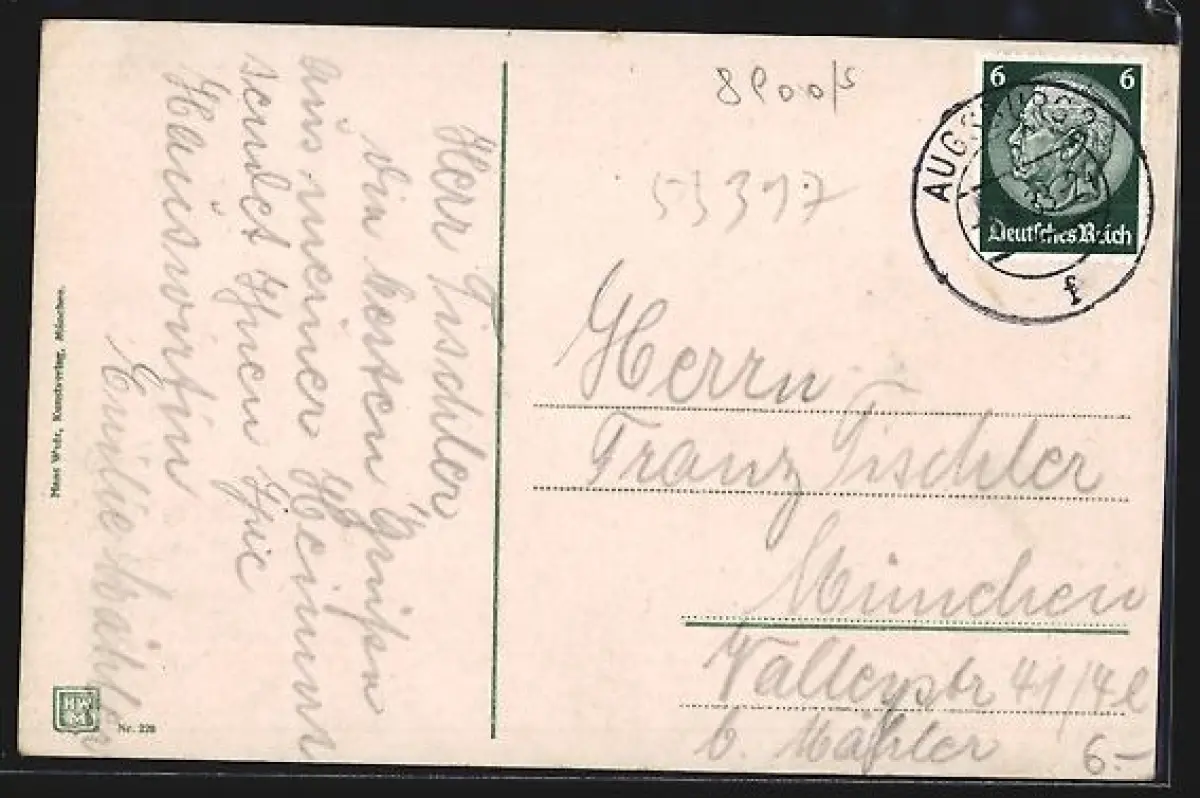 Herr Tischler
die besten Grüßen
aus meiner Heimat
sendet Ihnen Ihre
Hauswirtin
Emilie Mähler
Hans Wehr, Kunstverlag, München.
HWM
Nr. 220
8900/s
55317
6 6
Deutsches Reich
AUGSBURG 2
f
Herrn
Franz Tischler
München
Valleystr 41/4l
b. Mähler
6.-